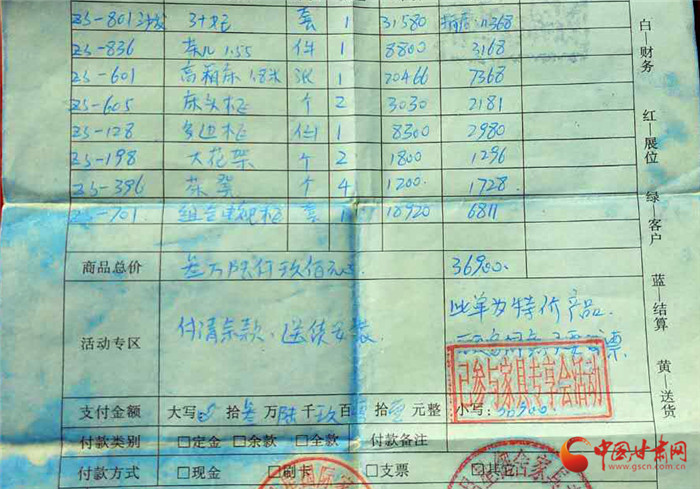 ZS-801沙发 3+组 套 1 31580 11368
ZS-836 茶几 1.55 件 1 8800 3168
ZS-601 高箱床 1.8米 张 1 20466 7368
ZS-605 床头柜 个 2 3030 2181
ZS-128 多边柜 件 1 8300 2980
ZS-198 大花架 个 2 1800 1296
ZS-396 茶凳 个 4 1200. 1728.
ZS-701 组合电视柜 套 1 18920 6811
商品总价 叁万陆仟玖佰元 36900.
活动专区 付清余款、送货安装
此单为特价产品
已参与家具专享会活动
支付金额 大写 拾叁万陆千玖百 拾 元整 小写:
付款类别 □定金 □余款 □全款 付款备注
付款方式 □现金 □刷卡 □支票 □其它
白—财务 红—展位 绿—客户 蓝—结算 黄—送货
中国甘肃网
www.gscn.com.cn